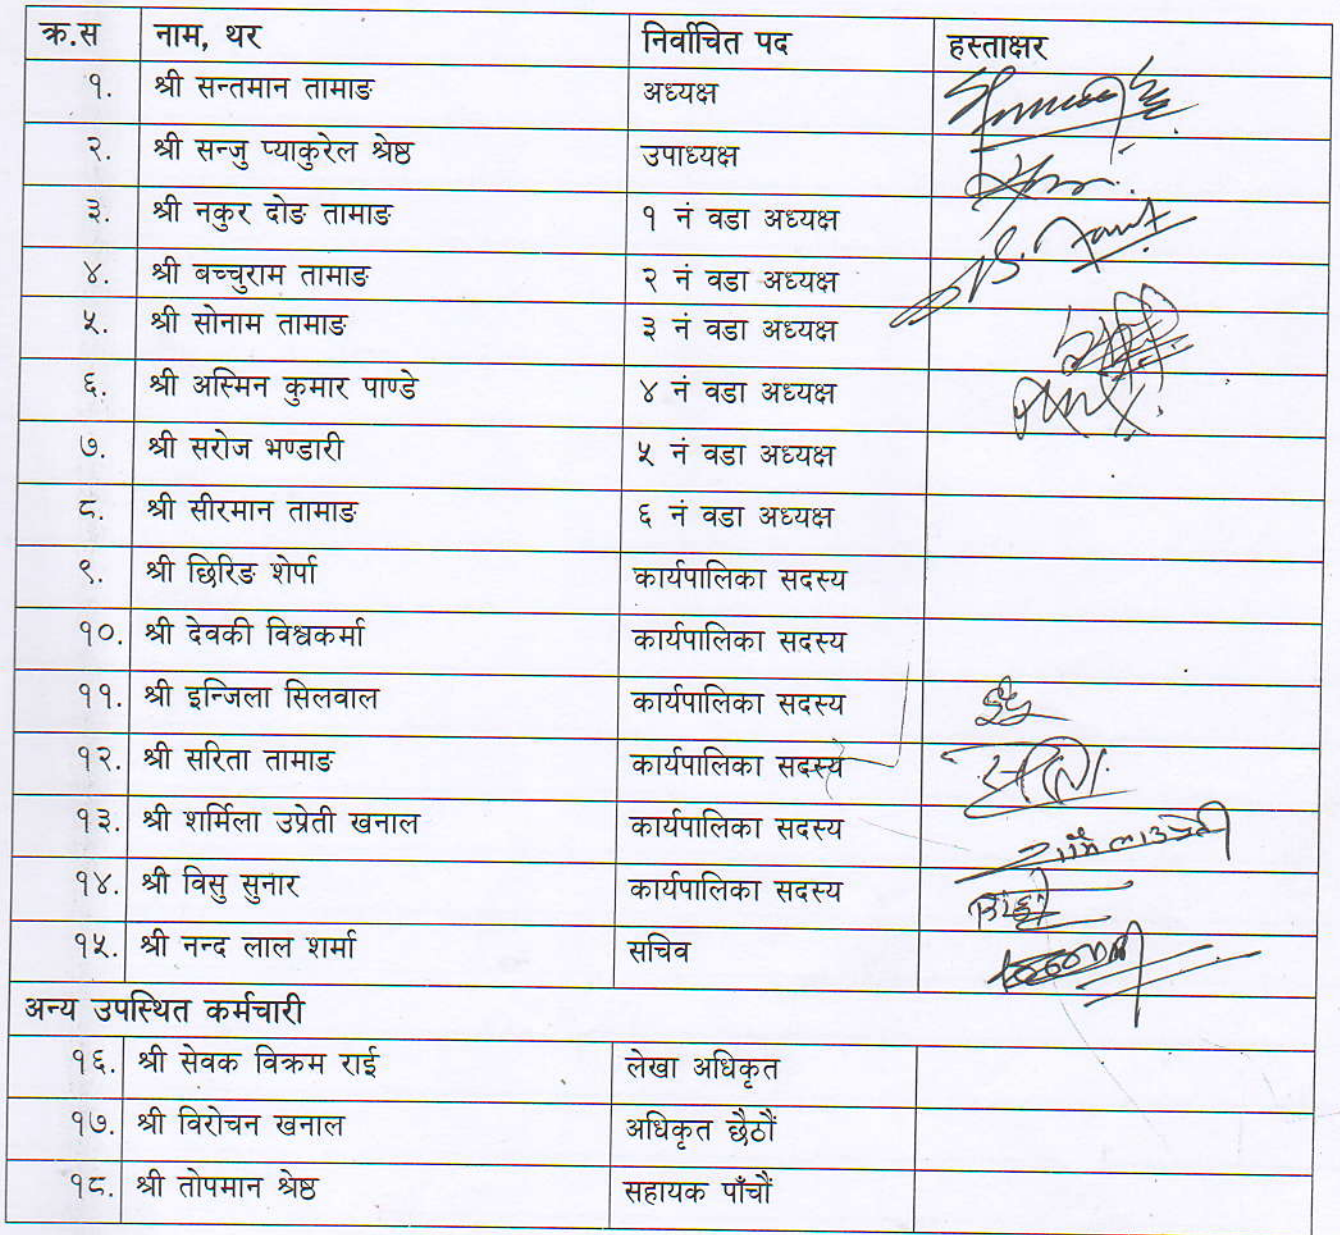 क्र.स नाम, थर निर्वाचित पद हस्ताक्षर
१. श्री सन्तमान तामाङ अध्यक्ष
२. श्री सन्जु प्याकुरेल श्रेष्ठ उपाध्यक्ष
३. श्री नकुर दोङ तामाङ १ नं वडा अध्यक्ष
४. श्री बच्चुराम तामाङ २ नं वडा अध्यक्ष
५. श्री सोनाम तामाङ ३ नं वडा अध्यक्ष
६. श्री अस्मिन कुमार पाण्डे ४ नं वडा अध्यक्ष
७. श्री सरोज भण्डारी ५ नं वडा अध्यक्ष
८. श्री सीरमान तामाङ ६ नं वडा अध्यक्ष
९. श्री छिरिङ शेर्पा कार्यपालिका सदस्य
१०. श्री देवकी विश्वकर्मा कार्यपालिका सदस्य
११. श्री इन्जिला सिलवाल कार्यपालिका सदस्य
१२. श्री सरिता तामाङ कार्यपालिका सदस्य
१३. श्री शर्मिला उप्रेती खनाल कार्यपालिका सदस्य
१४. श्री विसु सुनार कार्यपालिका सदस्य
१५. श्री नन्द लाल शर्मा सचिव
अन्य उपस्थित कर्मचारी
१६. श्री सेवक विक्रम राई लेखा अधिकृत
१७. श्री विरोचन खनाल अधिकृत छैठौं
१८. श्री तोपमान श्रेष्ठ सहायक पाँचौं